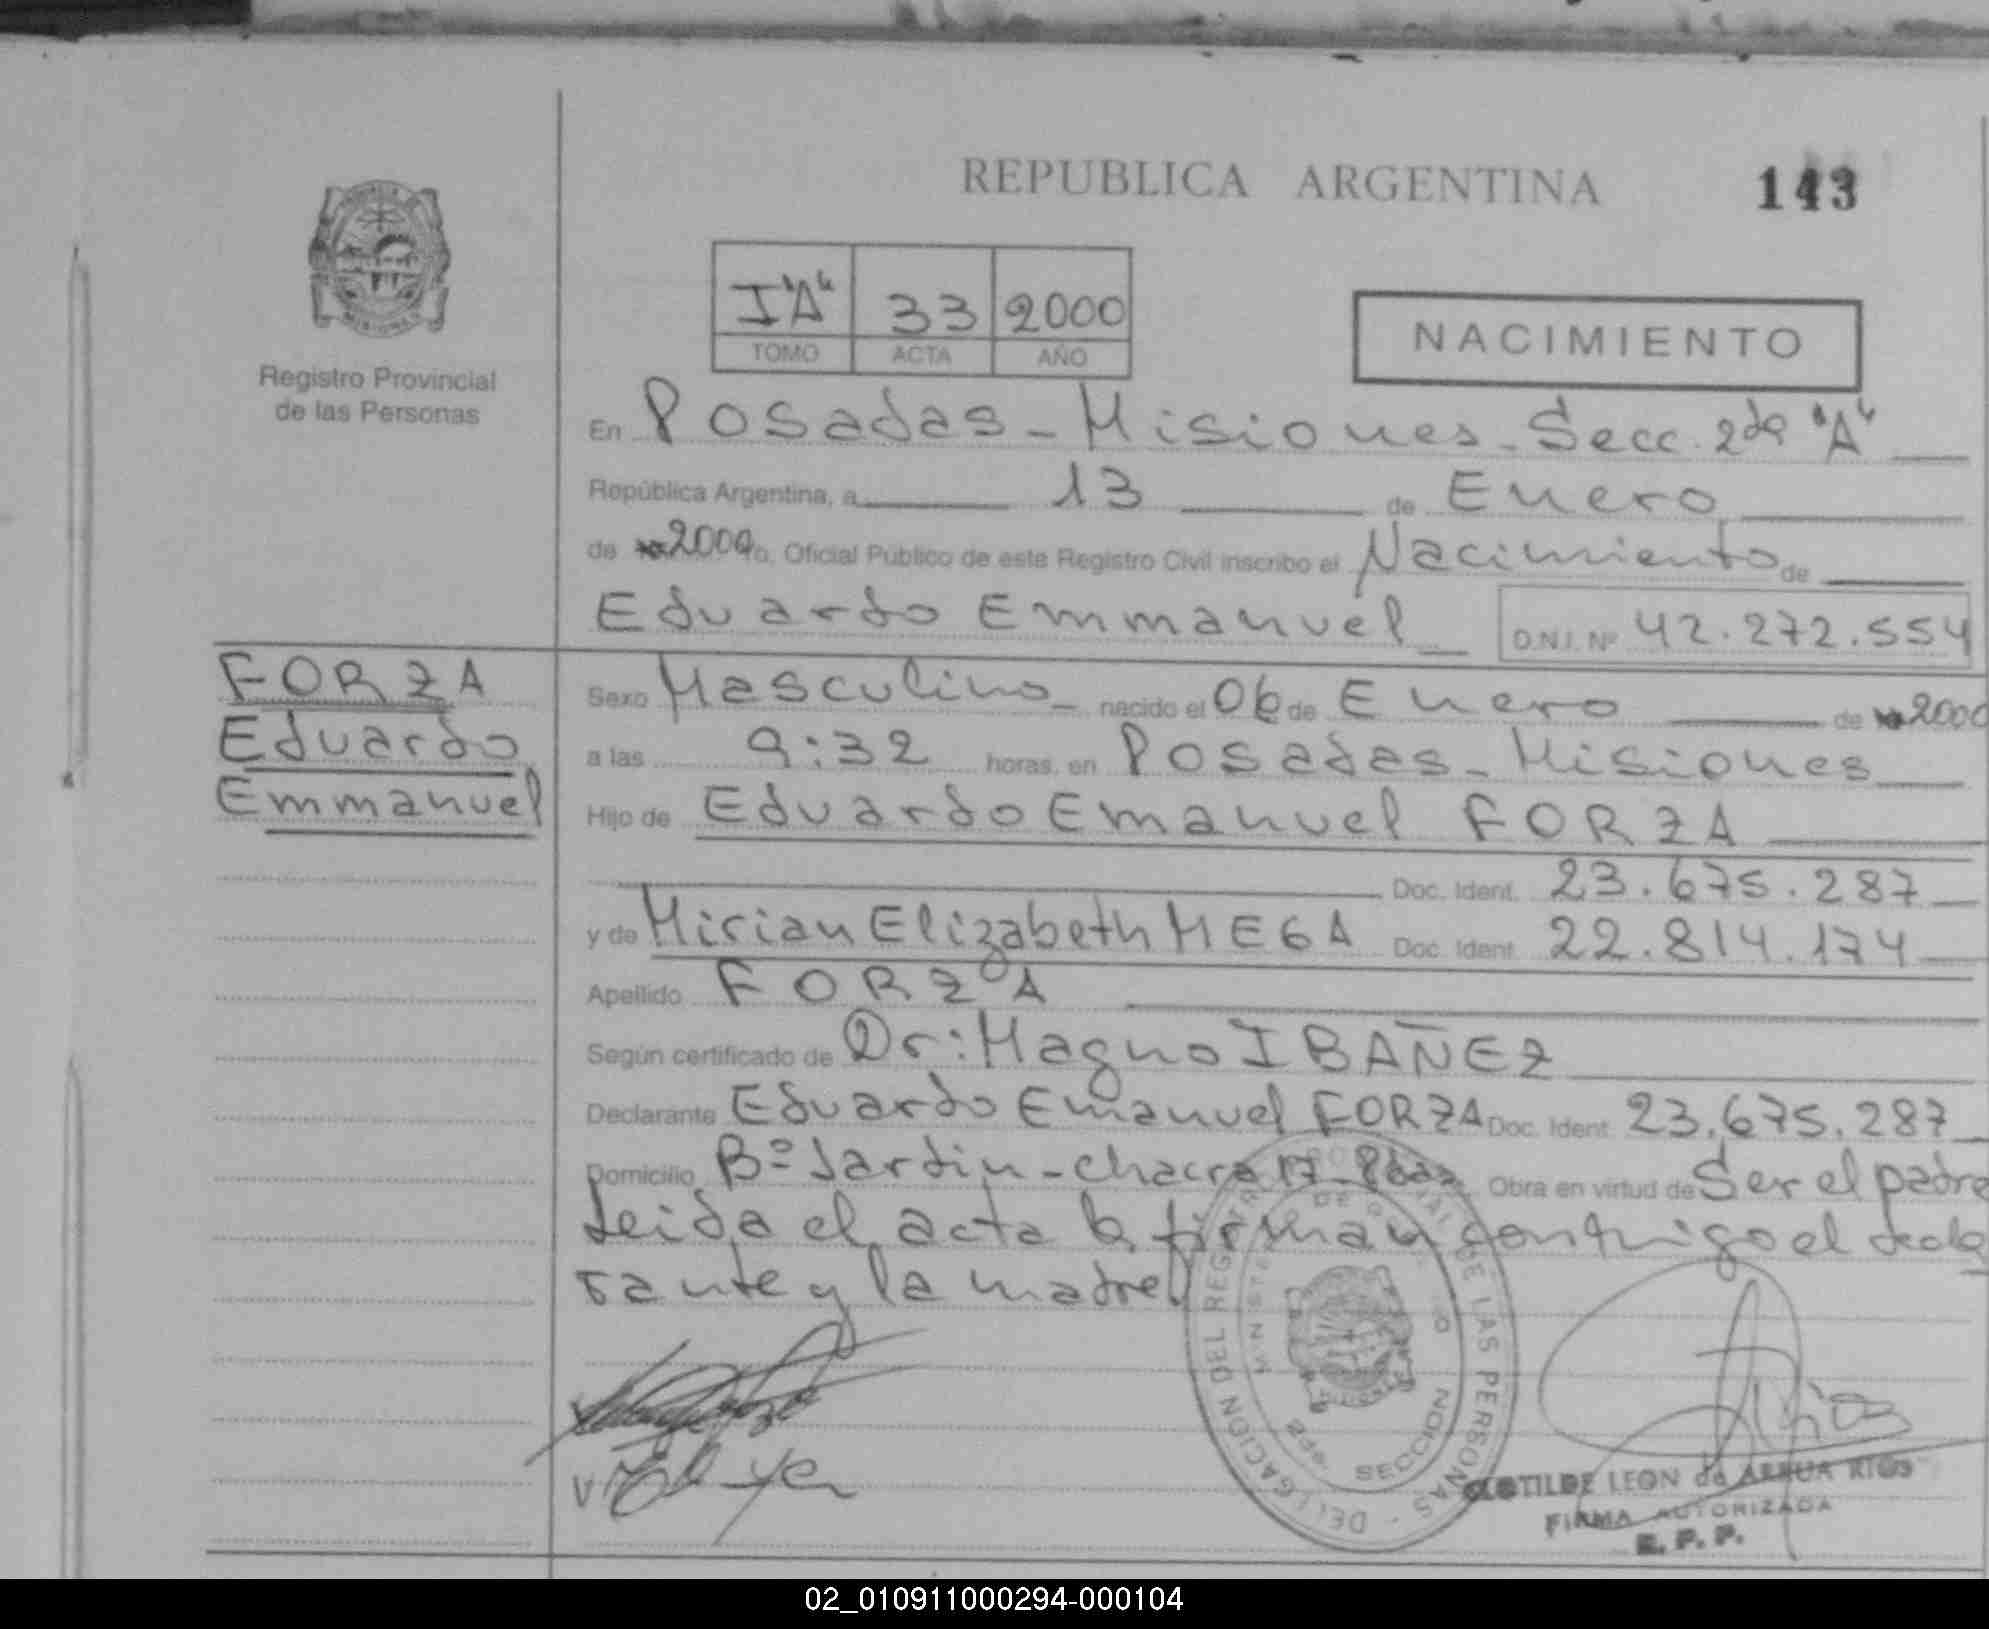 REPUBLICA ARGENTINA 143
Registro Provincial
de las Personas
I "A" 33 2000
TOMO ACTA AÑO
NACIMIENTO
En Posadas - Misiones - Secc. 2da "A"
República Argentina, a 13 de Enero
de 2000 yo, Oficial Público de este Registro Civil inscribo el Nacimiento de
Eduardo Emmanuel D.N.I. Nº 42.272.554
FORZA
Eduardo
Emmanuel
Sexo Masculino nacido el 06 de Enero de 2000
a las 9:32 horas, en Posadas - Misiones
Hijo de Eduardo Emanuel FORZA
Doc. Ident. 23.675.287
y de Mirian Elizabeth MEGA Doc. Ident. 22.814.174
Apellido FORZA
Según certificado de Dr: Magno IBAÑEZ
Declarante Eduardo Emanuel FORZA Doc. Ident. 23.675.287
Domicilio Bº Jardin - chacra 17 - Obra en virtud de Ser el padre
Leida el acta la firman conmigo el decla
rante y la madre
DELEGACION DEL REGISTRO PROVINCIAL DE LAS PERSONAS
MINISTERIO DE GOBIERNO
2da SECCION
CLOTILDE LEON de ARRUA RIOS
FIRMA AUTORIZADA
R. P. P.
02_010911000294-000104